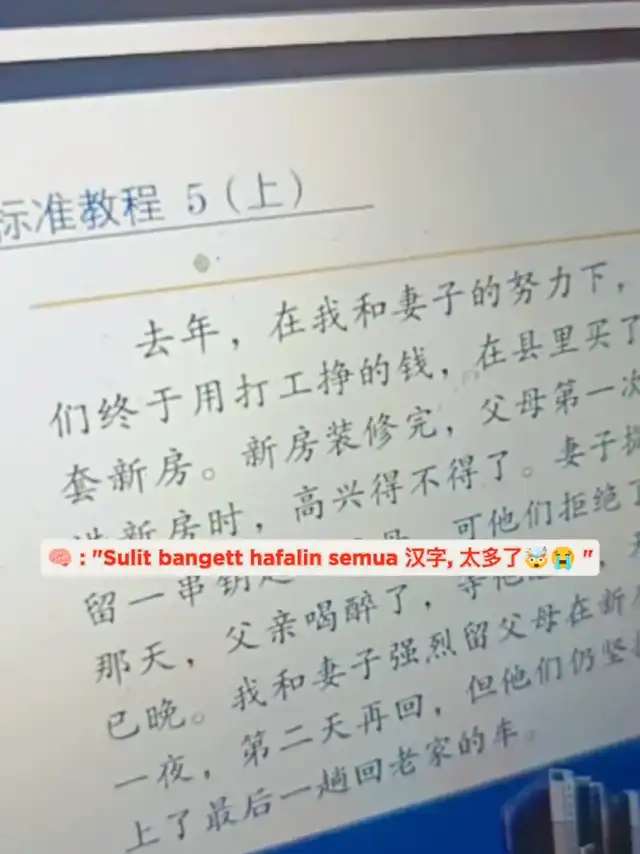 标准教程 5（上）
去年，在我和妻子的努力下，
们终于用打工挣的钱，在县里买了
套新房。新房装修完，父母第一次
新房时，高兴得不得了。妻子
🧠 : "Sulit bangett hafalin semua 汉字, 太多了🤯😭 "
可他们拒绝了
留一串钥
那天，父亲喝醉了，等他
已晚。我和妻子强烈留父母在新
一夜，第二天再回，但他们仍坚
上了最后一趟回老家的车。